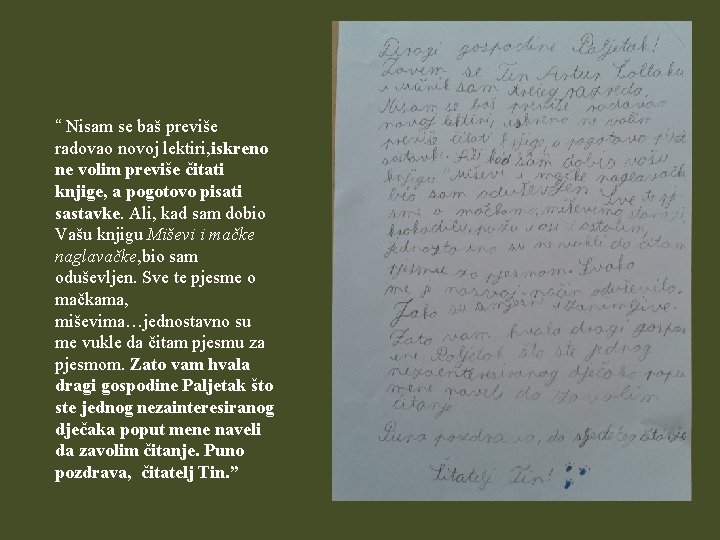 “ Nisam se baš previše
radovao novoj lektiri,iskreno
ne volim previše čitati
knjige, a pogotovo pisati
sastavke. Ali, kad sam dobio
Vašu knjigu Miševi i mačke
naglavačke,bio sam
oduševljen. Sve te pjesme o
mačkama,
miševima…jednostavno su
me vukle da čitam pjesmu za
pjesmom. Zato vam hvala
dragi gospodine Paljetak što
ste jednog nezainteresiranog
dječaka poput mene naveli
da zavolim čitanje. Puno
pozdrava, čitatelj Tin.”
Dragi gospodine Paljetak!
Zovem se Tin Artur
i učnik sam trećeg razreda.
Nisam se baš previše radovao
novoj lektiri, iskreno ne volim
previše čitat knjige, a pogotovo
sastavke. Ali kad sam dobio vašu
knjigu "Miševi i mačke naglavačke
bio sam oduševljen. Sve te pje-
sme o mačkama, miševima,
krokodilu, pužu i osi i ostalim,
jednostavno su me vukle da čitam
pjesmu za pjesmom. Svako
me je na svoj način oduševilo.
Jako su smješne i zanimljive.
Zato vam hvala dragi gospod
ine Paljetak što ste jednog
nezainteresiranog dječaka popu
mene naveli da zavolim
čitanje
Puno pozdrava, do sljedećeg čitanja
Čitatelj Tin!